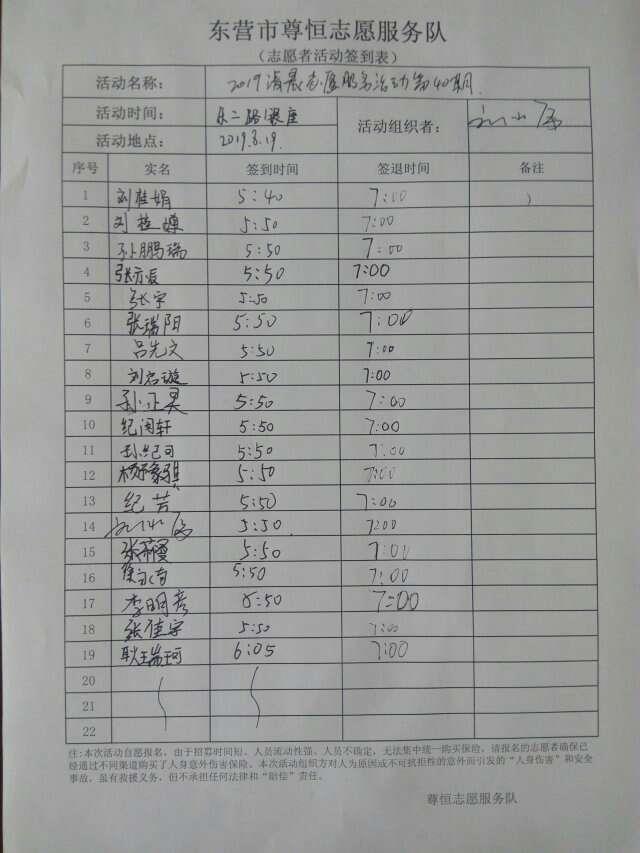 东营市尊恒志愿服务队
（志愿者活动签到表）
活动名称： 2019清晨志愿服务活动第40期.
活动时间： 东二路银座
活动组织者：
活动地点： 2019.8.19.
序号 实名 签到时间 签退时间 备注
1 刘桂娟 5:40 7:00
2 刘 5:50 7:00
3 孙鹏瑞 5:50 7:00
4 张亦辰 5:50 7:00
5 张宇 5:50 7:00
6 张瑞阳 5:50 7:00
7 吕先文 5:50 7:00
8 刘名璇 5:50 7:00
9 孙正昊 5:50 7:00
10 纪闰轩 5:50 7:00
11 5:50 7:00
12 杨豫骐 5:50 7:00
13 纪芸 5:50 7:00
14 5:50. 7:00
15 张蔚曼 5:50 7:00
16 5:50 7:00
17 李明彦 5:50 7:00
18 张佳宇 5:50 7:00
19 耿瑞珂 6:05 7:00
20
21
22
注:本次活动自愿报名，由于招募时间短、人员流动性强、人员不确定，无法集中统一购买保险，请报名的志愿者确保已
经通过不同渠道购买了人身意外伤害保险。本次活动组织方对人为原因或不可抗拒性的意外而引发的“人身伤害”和安全
事故，虽有救援义务，但不承担任何法律和“赔偿”责任。
尊恒志愿服务队